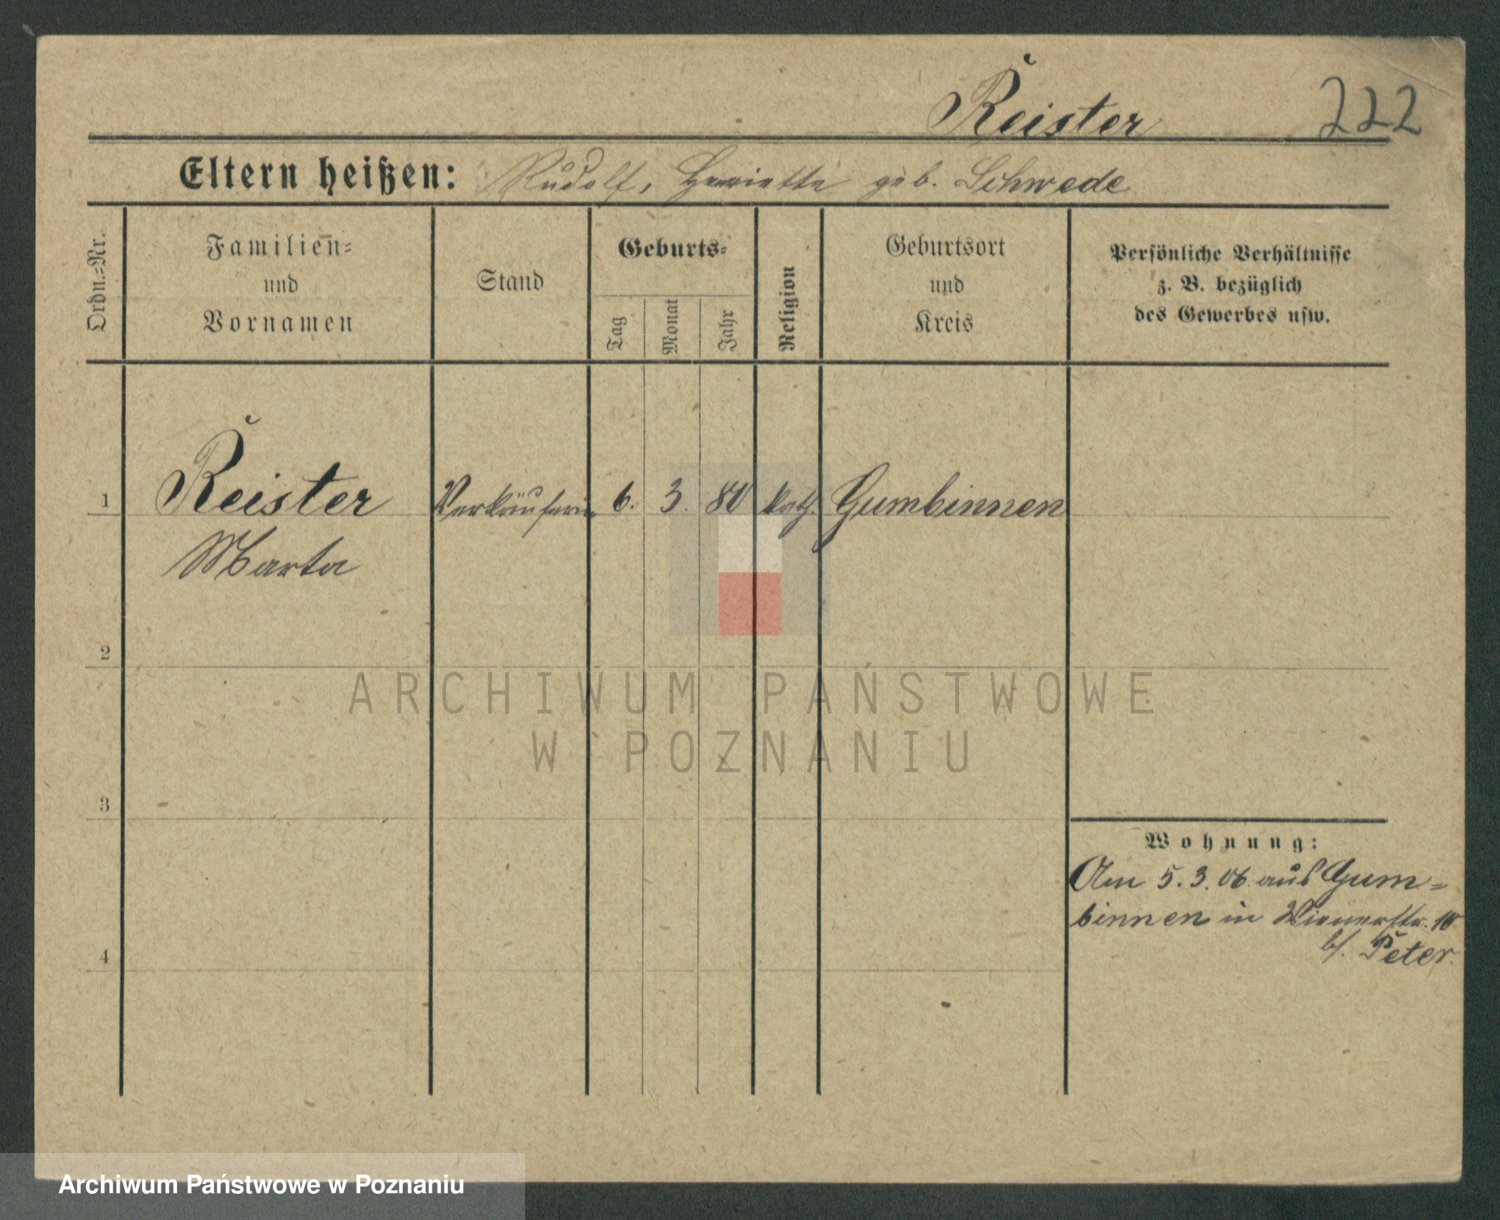 Reister 222
Eltern heißen: Rudolf, Henriette geb. Schwede
Ordn.=Nr.
Familien=
und
Vornamen
Stand
Geburts=
Tag
Monat
Jahr
Religion
Geburtsort
und
Kreis
Persönliche Verhältnisse
z. B. bezüglich
des Gewerbes usw.
1 Reister Verkäuferin 6. 3. 80 kath. Gumbinnen
Marta
2
3
4
Wohnung:
Am 5.3.06 aus Gum=
binnen in Wienerstr. 10
b/. Peter.
ARCHIWUM PAŃSTWOWE
W POZNANIU
Archiwum Państwowe w Poznaniu